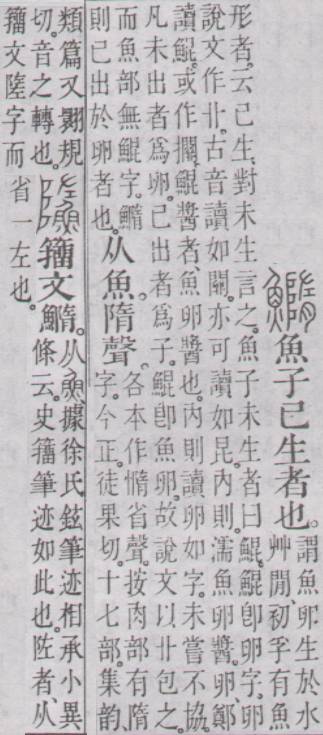 魚子已生者也。
謂魚卵生於水
艸閒初孚有魚
形者。云已生、對未生言之。魚子未生者曰鯤。鯤卽卵字。卵
說文作卝。古音讀如關。亦可讀如昆。內則濡魚卵醬。卵鄭
讀鯤。或作攔。鯤醬者、魚卵醬也。內則讀卵如字。未嘗不協。
凡未出者爲卵。已出者爲子。鯤卽魚卵。故說文以卝包之。
而魚部無鯤字。鰖
則已出於卵者也。
从魚。隋聲。
各本作惰省聲。按肉部有隋
字。今正。徒果切。十七部。集韵、
類篇又翾規
切。音之轉也。
籒文鰖。从
據徐氏鉉筆迹相承小異
條云。史籒筆迹如此也。者、从
籒文字而
省一左也。